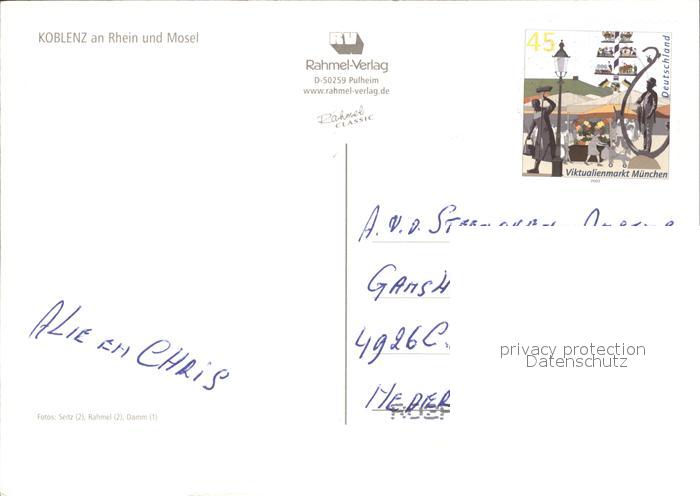 KOBLENZ an Rhein und Mosel
RV
Rahmel-Verlag
D-50259 Pulheim
www.rahmel-verlag.de
Rahmel
CLASSIC
45
Deutschland
Viktualienmarkt München
2003
A.V.D.
GAMSH
4926C
privacy protection
Datenschutz
ALIE EN CHRIS
Fotos: Seitz (2), Rahmel (2), Damm (1)